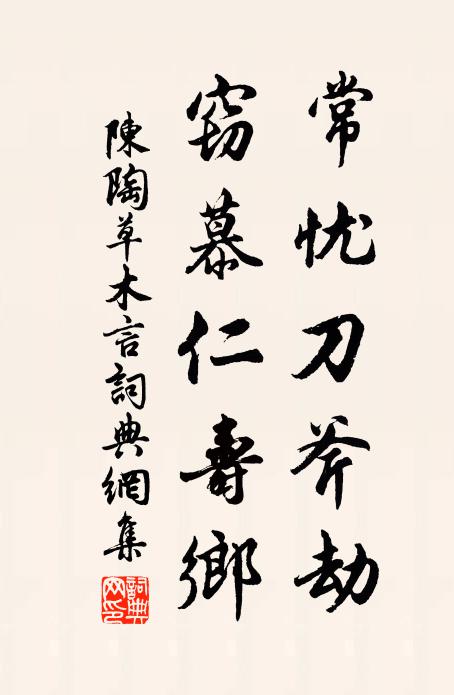 常忧刀斧劫
窃慕仁壽鄉
陳陶草木言詞典網集
詞典
网印